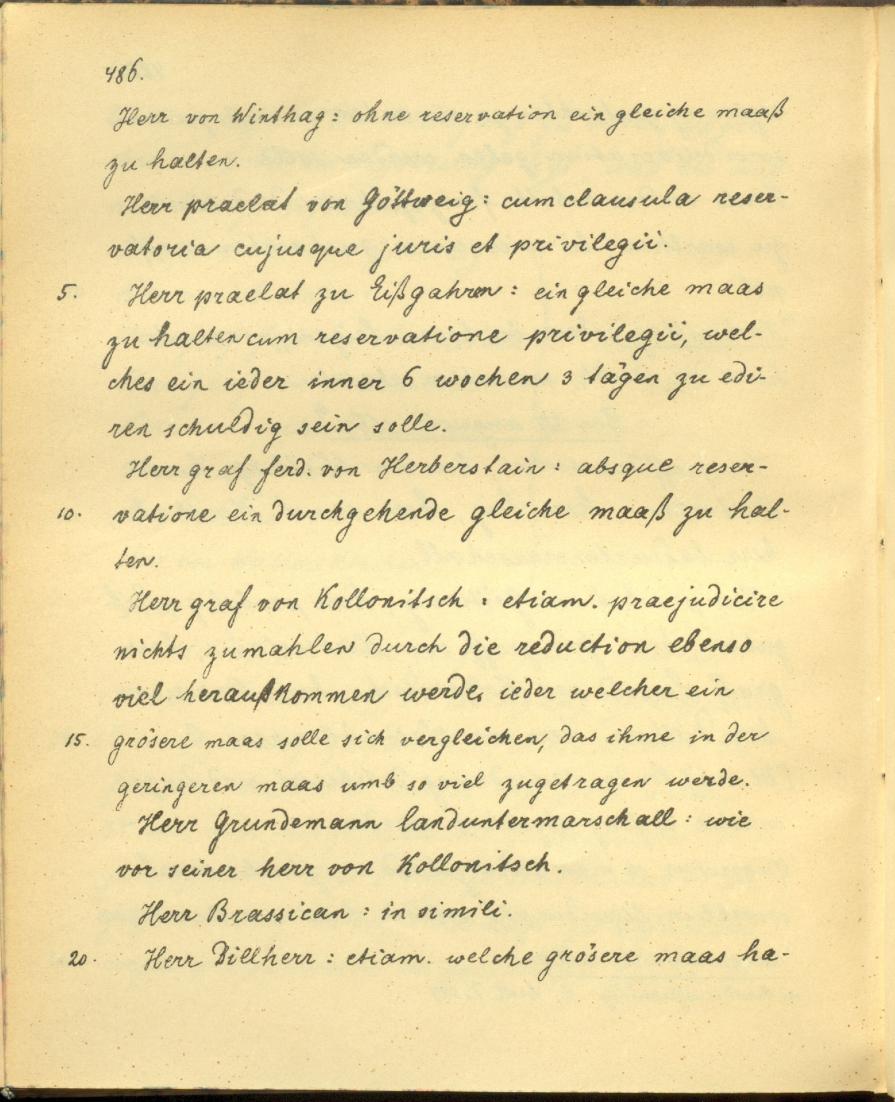 486.
Herr von Winthag: ohne reservation ein gleiche maaß
zu halten.
Herr praelat von Göttweig: cum clausula reser-
vatoria cujusque juris et privilegii.
5. Herr praelat zu Eißgahren: ein gleiche maas
zu halten cum reservatione privilegii, wel-
ches ein ieder inner 6 wochen 3 tägen zu edi-
ren schuldig sein solle.
Herr graf ferd. von Herberstain: absque reser-
10. vatione ein durchgehende gleiche maaß zu hal-
ten.
Herr graf von Kollonitsch: etiam. praejudicire
nichts zumahlen durch die reduction ebenso
viel herauskommen werde, ieder welcher ein
15. grösere maas solle sich vergleichen, das ihme in der
geringeren maas umb so viel zugetragen werde.
Herr Grundemann landuntermarschall: wie
vor seiner herr von Kollonitsch.
Herr Brassican: in simili.
20. Herr Dillherr: etiam. welche grösere maas ha-